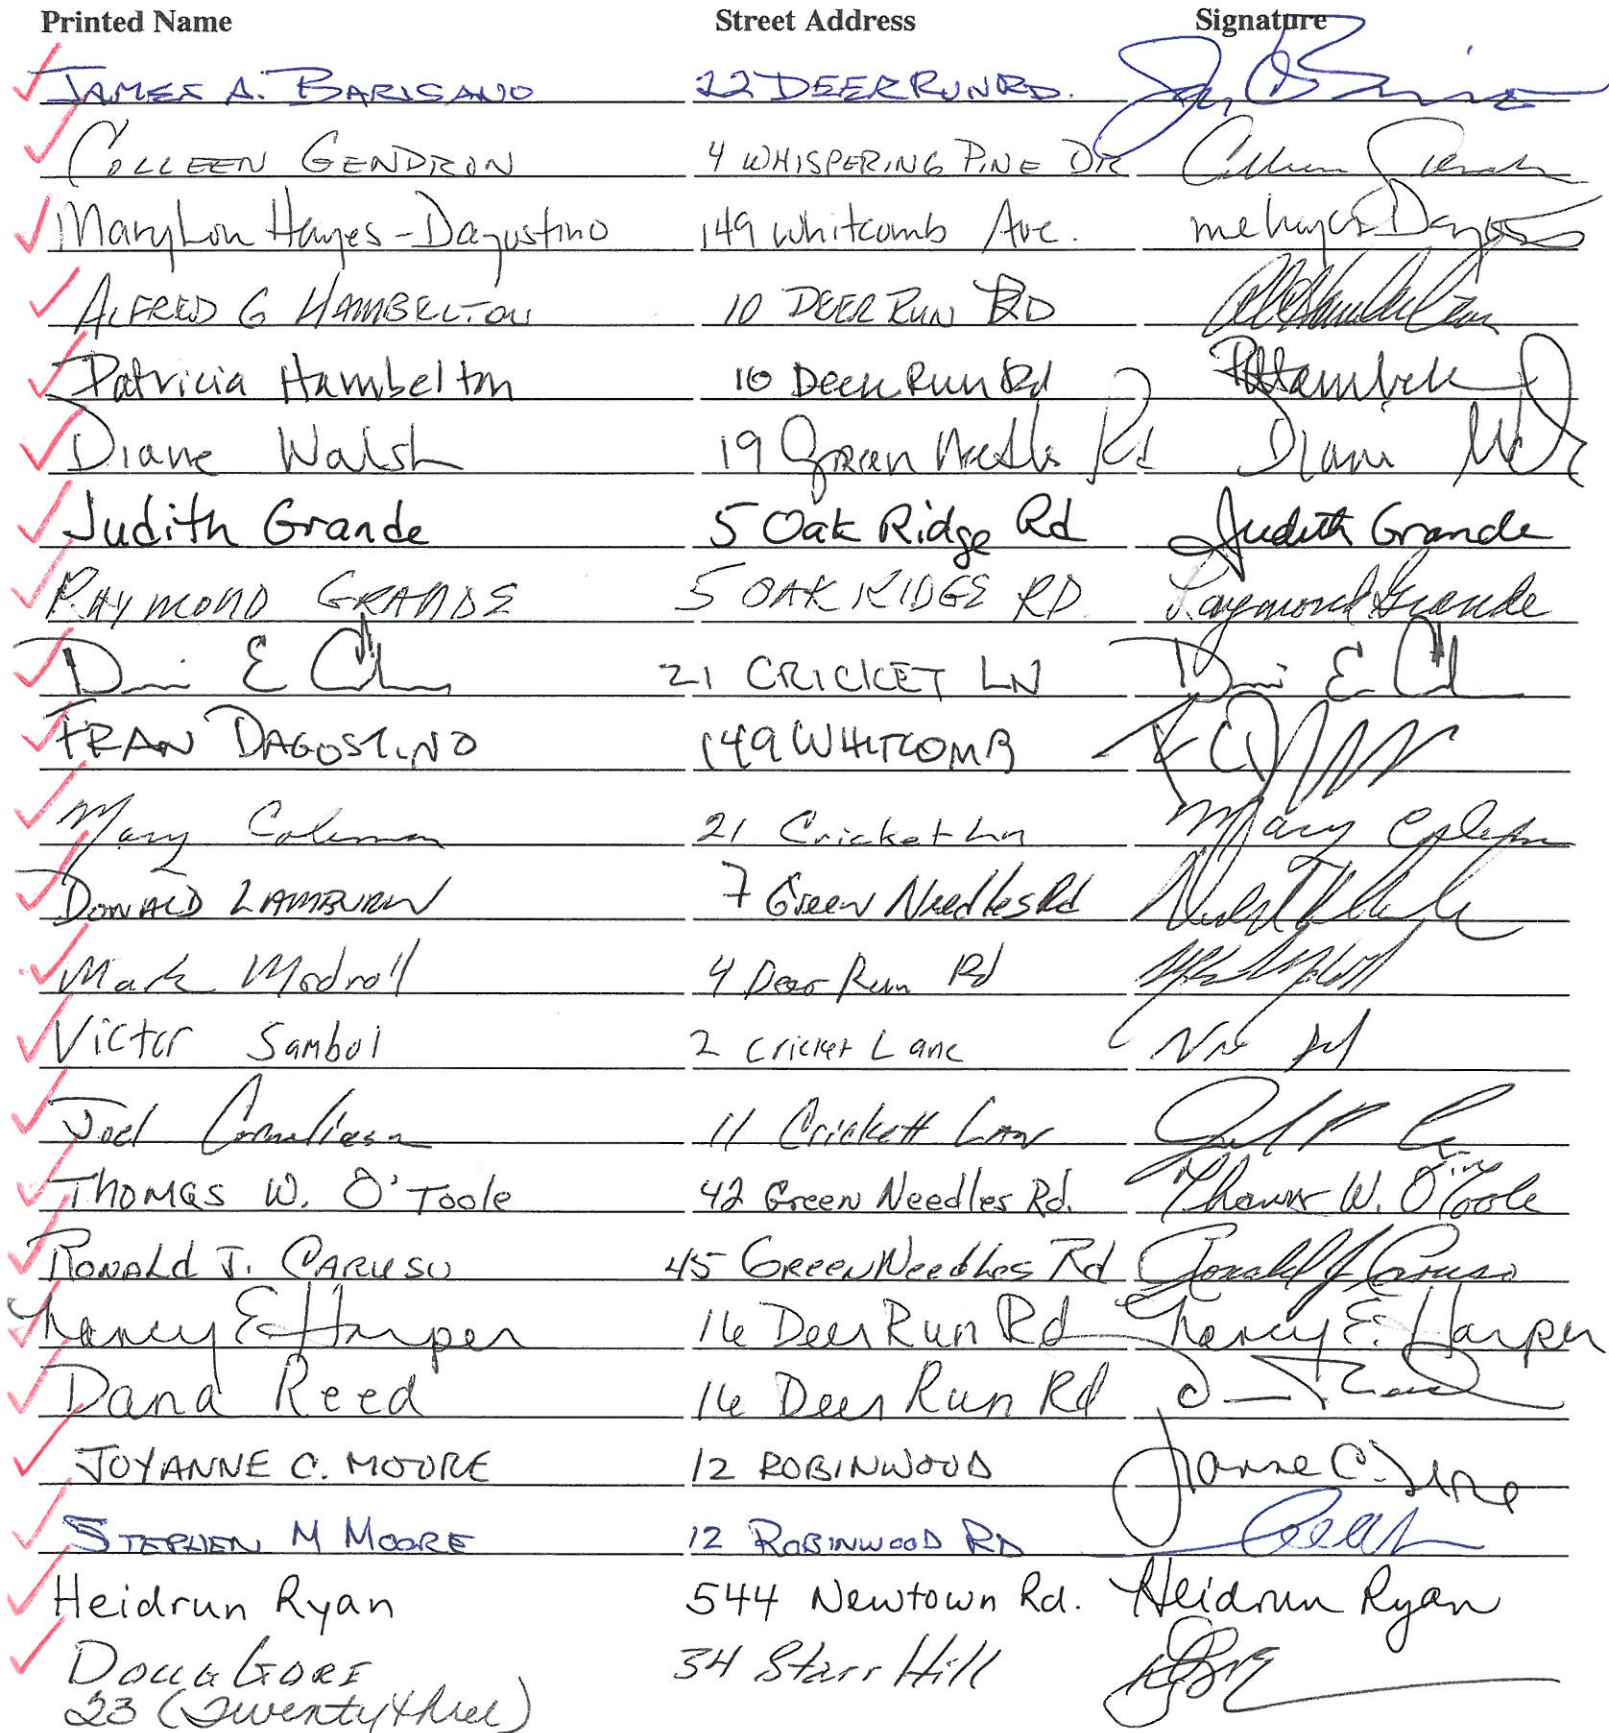 Printed Name Street Address Signature
JAMES A. BARISANO 22 DEER RUN RD.
COLLEEN GENDRON 4 WHISPERING PINE DR
MaryLou Hayes-Dagostino 149 Whitcomb Ave.
ALFRED G HAMBELTON 10 DEER RUN RD
Patricia Hambelton 10 Deer Run Rd
Diane Walsh 19 Green Needles Rd Diane
Judith Grande 5 Oak Ridge Rd Judith Grande
RAYMOND GRANDE 5 OAK RIDGE RD Raymond Grande
21 CRICKET LN
FRAN DAGOSTINO 149 WHITCOMB
Mary Coleman 21 Cricket Ln Mary Coleman
DONALD LAMBURN 7 Green Needles Rd
Mark 4 Deer Run Rd
Victor Sambol 2 Cricket Lane
Joel Corneliesen 11 Crickett Lane
THOMAS W. O'Toole 42 Green Needles Rd. Thomas W. O'Toole
RONALD J. CARUSO 45 GREEN Needles Rd Ronald J Caruso
Nancy E Harper 16 Deer Run Rd Nancy E. Harper
Dana Reed 16 Deer Run Rd
JOYANNE C. MOORE 12 ROBINWOOD
STEPHEN M MOORE 12 ROBINWOOD RD
Heidrun Ryan 544 Newtown Rd. Heidrun Ryan
DOUG GORE 34 Starr Hill
23 (Twenty three)